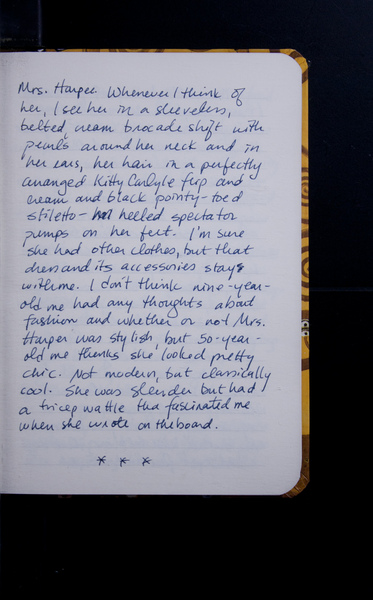 Mrs. Harper. Whenever I think of
her, I see her in a sleeveless,
belted, cream brocade shift with
pearls around her neck and in
her ears, her hair in a perfectly
arranged Kitty Carlyle flip and
cream and black pointy-toed
stiletto-heeled spectator
pumps on her feet. I'm sure
she had other clothes, but that
dress and its accessories stays
with me. I don't think nine-year-
old me had any thoughts about
fashion and whether or not Mrs.
Harper was stylish, but 50-year-
old me thinks she looked pretty
chic. Not modern, but classically
cool. She was slender but had
a tricep wattle that fascinated me
when she wrote on the board.
* * *